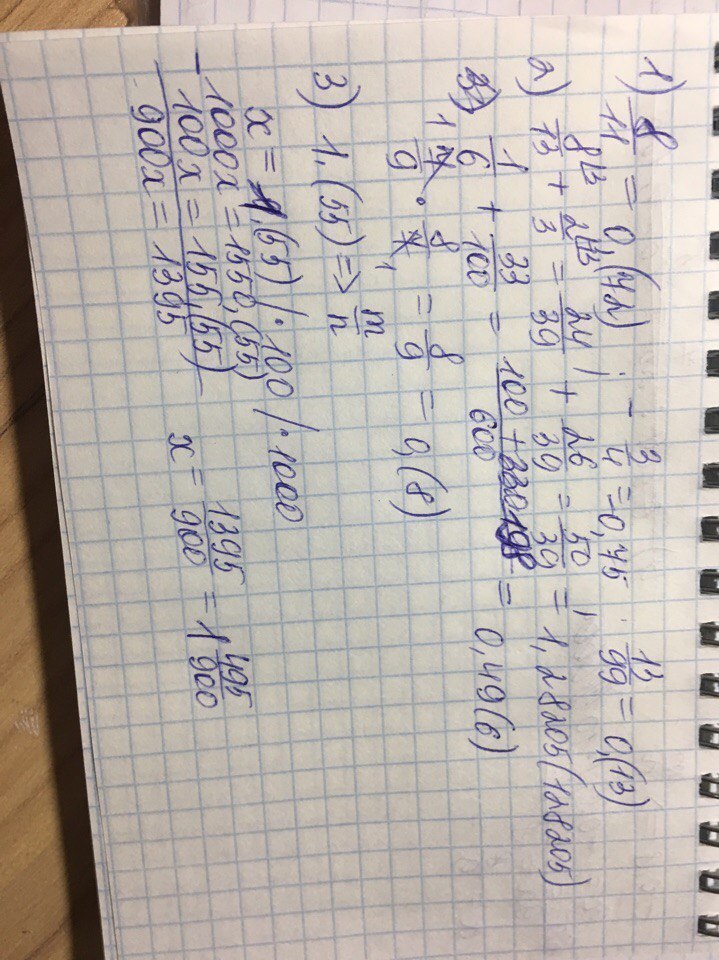 1) 8/11 = 0,(72) ; - 3/4 = -0,75 ; 13/99 = 0,(13)
2) 8/13 + 2/3 = 24/39 + 26/39 = 50/39 = 1,28205(128205)
1/6 + 33/100 = 100 + 198/600 = 0,49(6)
7/9 · 8/7 = 8/9 = 0,(8)
3) 1,(55) => m/n
x = 1,(55) /·100 /·1000
1000x = 1550,(55)
- 100x = 155,(55)
900x = 1395 x = 1395/900 = 1 495/900